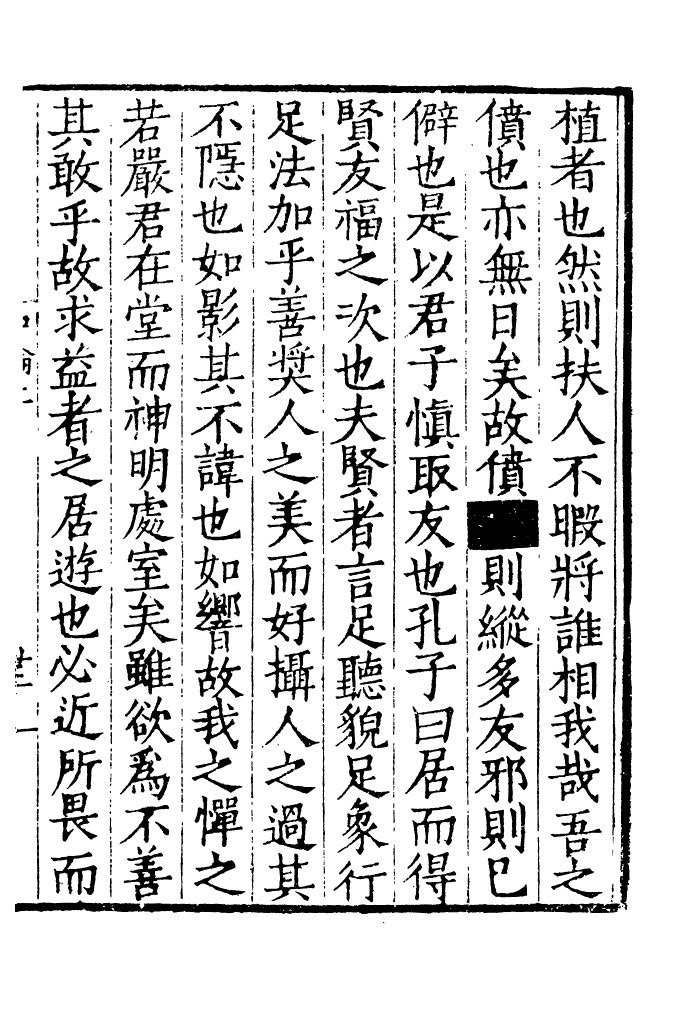 植者也然則扶人不暇將誰相我哉吾之
僨也亦無日矣故僨則縱多友邪則已
僻也是以君子慎取友也孔子曰居而得
賢友福之次也夫賢者言足聽貌足象行
足法加乎善奬人之美而好攝人之過其
不隱也如影其不諱也如響故我之憚之
若嚴君在堂而神明處室矣雖欲爲不善
其敢乎故求益者之居遊也必近所畏而